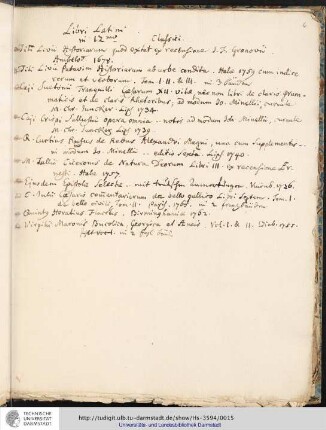 6
Libri Latini
in 12mo Classici.
Titi Livii Historiarum quod extat ex recensione J. F. Gronovii
Amstelod. 1678.
Titi Livii Patavini Historiarum ab urbe condita. Halae 1759 cum indice
rerum et verborum. Tom. I. II. & III. in 3
Caji Suetonii Tranquilli Caesarum XII. vitae, nec non libri de claris gram-
maticis et de claris Rhetoribus, ad modum Jo. Minellii, curante
M. Chr. Juncker. Lips. 1734.
Caj. Crispi Sallustii opera omnia notis ad modum Jo. Minellii, curante
M. Chr. Juncker Lips. 1739
Q. Curtius Rufus de Rebus Alexandri Magni, una cum supplementis
ad modum Jo. Minellii editio sexta. Lips. 1740.
M. Tullii Ciceronis de Natura Deorum Libri III. ex recensione Er-
nesti. Halae 1757
Ejusdem Epistolae Selectae. mit 1736.
C. Julii Caesaris commentariorum de bello gallico Libri Septem. Tom. I.
de bello civili, Tom. II. 1760. in 2
Quinti Horatius Flaccus. Birminghamiae 1762.
Virgilii Maronis Bucolica Georgica et Aeneis. Vol. I. & II. 1755.
in 2
TECHNISCHE
UNIVERSITÄT
DARMSTADT
http://tudigit.ulb.tu-darmstadt.de/show/Hs-3594/0015
Universitäts- und Landesbibliothek Darmstadt